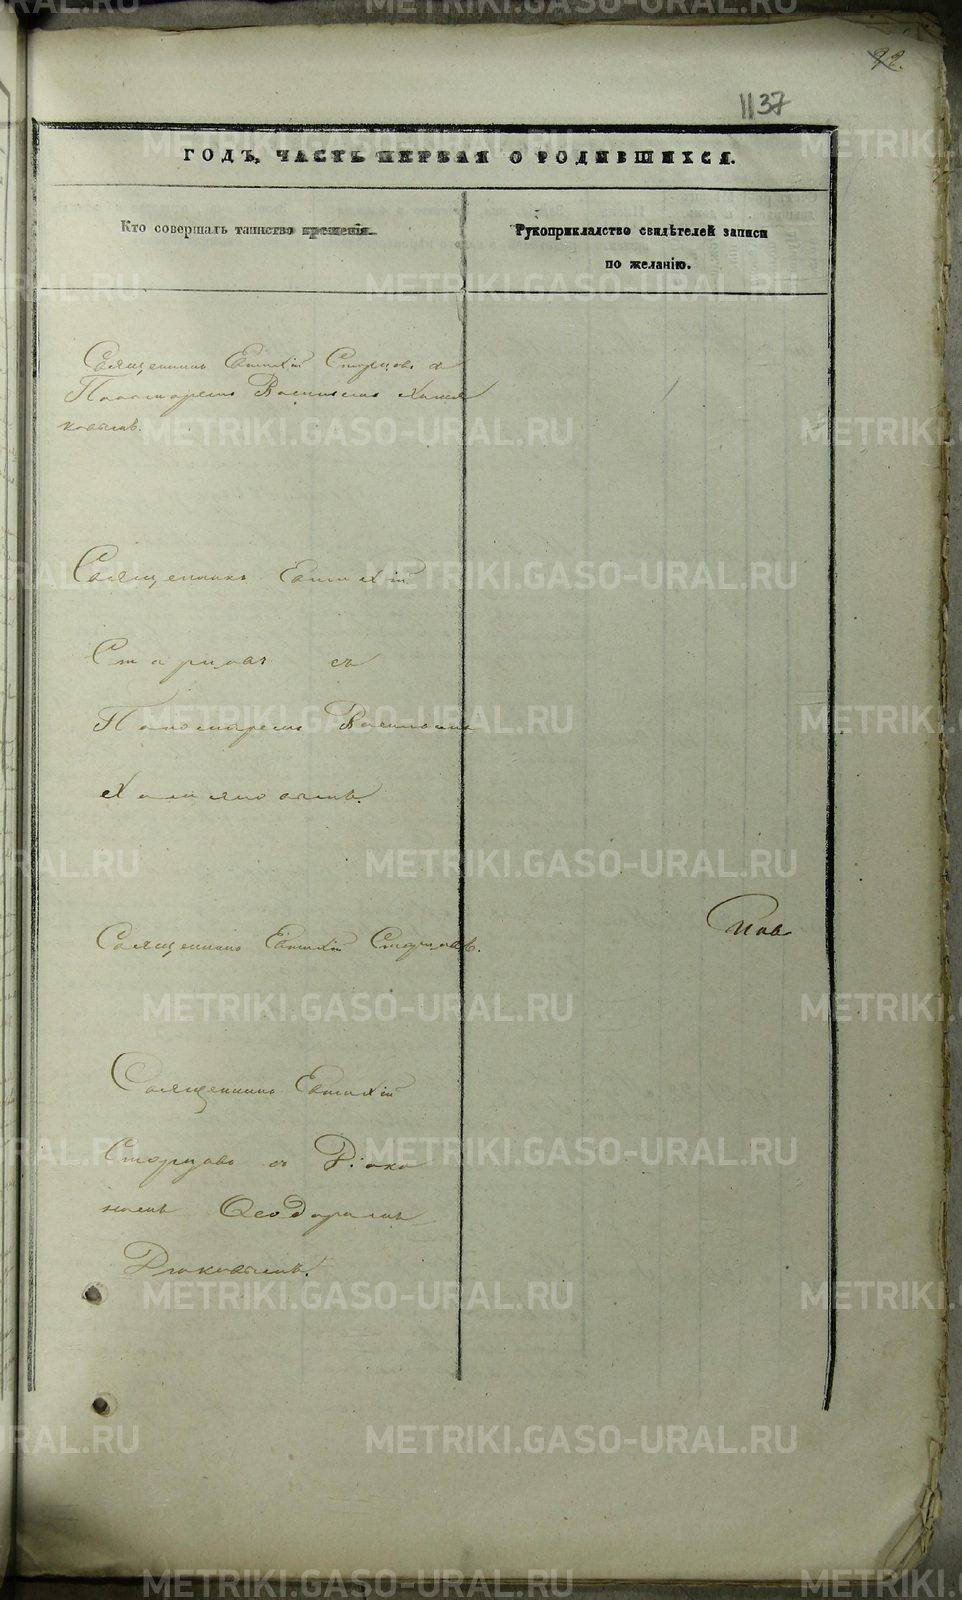 22.
1137
ГОДЪ, ЧАСТЬ ПЕРВАЯ О РОДИВШИХСЯ.
Кто совершалъ таинство крещенія.
Рукоприкладство свидѣтелей записи
по желанію.
Священникъ Евтихій Старцовъ с
Пономаремъ Василіемъ Хамя
ковымъ.
Священникъ Евтихій
Старцовъ съ
Пономаремъ Василіемъ
Священникъ Евтихій Старцовъ.
Священникъ Евтихій
Старцовъ съ Діако
номъ Ѳеодоромъ
METRIKI.GASO-URAL.RU